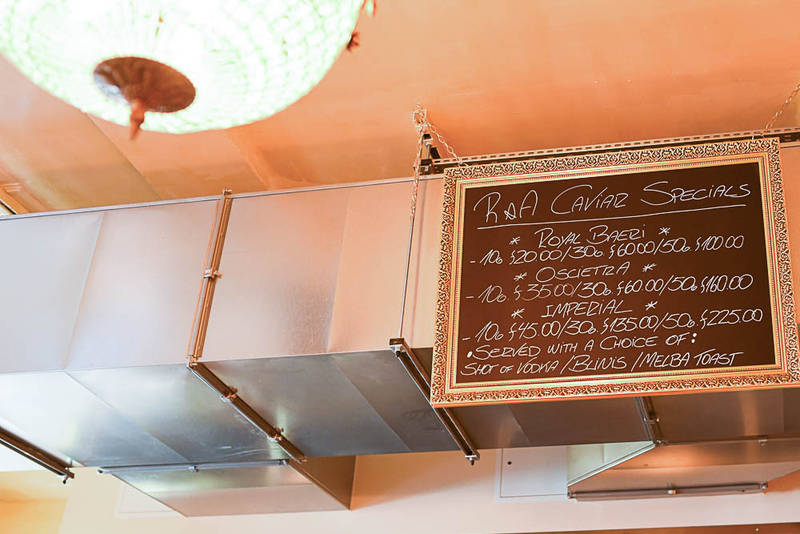 R&A CAVIAR SPECIALS
* ROYAL BAERI *
- 10G $20.00/30G $60.00/50G $100.00
* OSCIETRA *
- 10G $35.00/30G $60.00/50G $160.00
* IMPERIAL *
- 10G $45.00/30G $135.00/50G $225.00
• SERVED WITH A CHOICE OF:
SHOT OF VODKA/BLINIS/MELBA TOAST